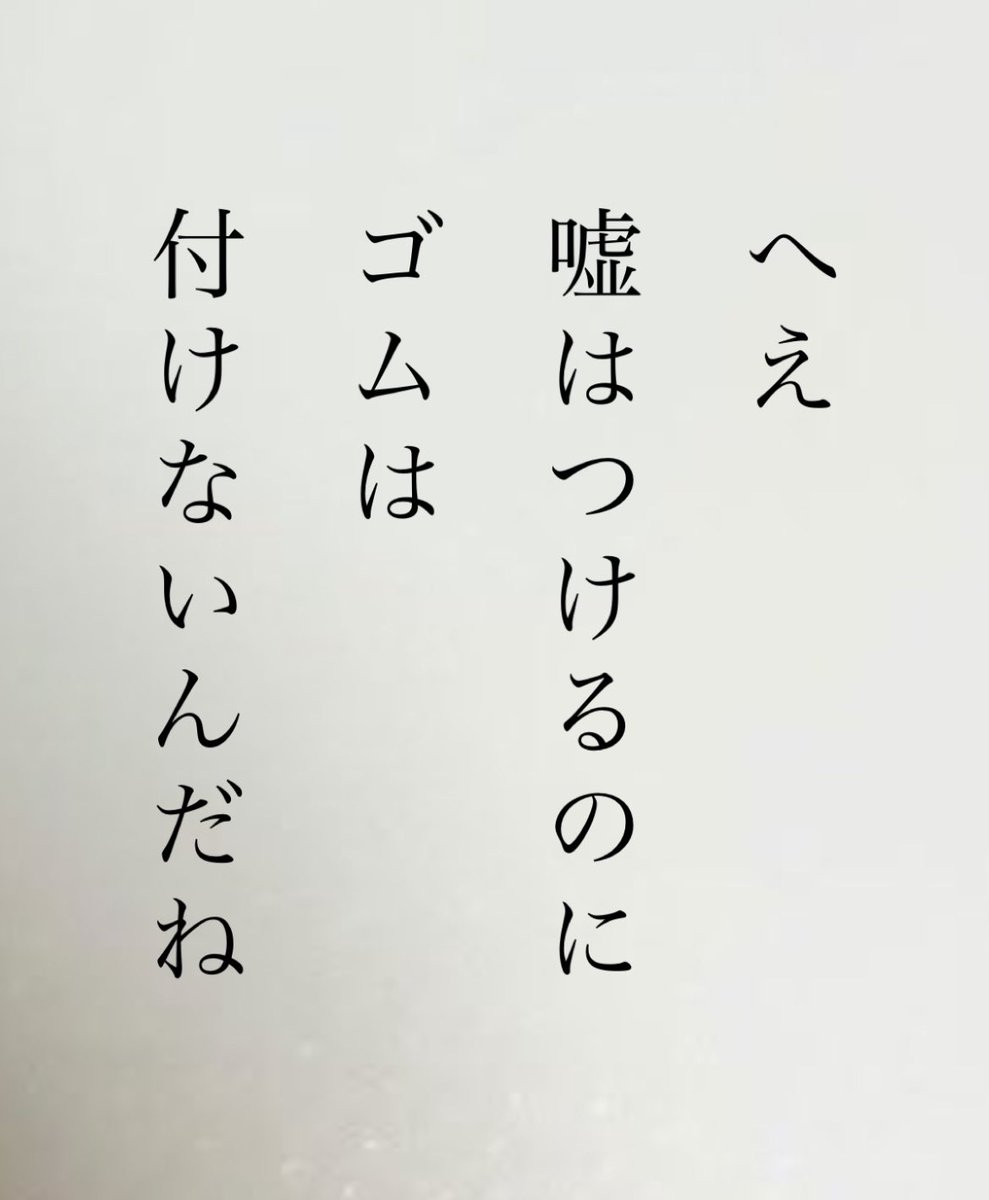 へえ
嘘はつけるのに
ゴムは
付けないんだね